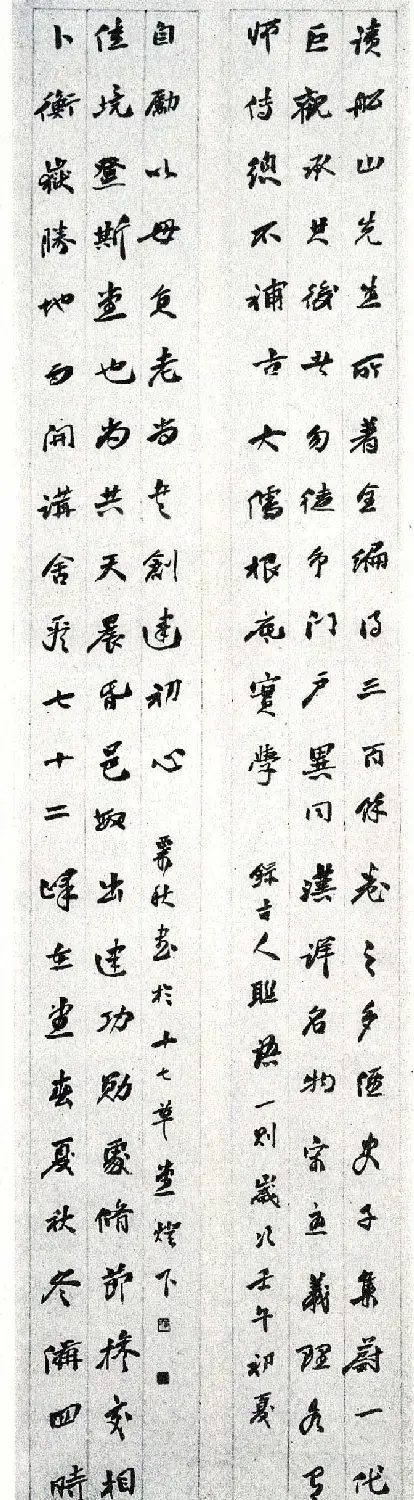 讀船山先生所著全編得三百餘卷之多經史子集蔚一代
巨觀承其後者勿徒爭門戶異同漢詳名物宋立義理各有
師傳總不補古大儒根底實學 錄古人聯語一則歲次壬午初夏
卜衡嶽勝地而開講舍七十二峰在堂春夏秋冬四時
佳境登斯堂也尚共天晨昏出建功勛處脩節操交相
自勵以毋負老尚書創建初心 栗秋書於十七草堂燈下